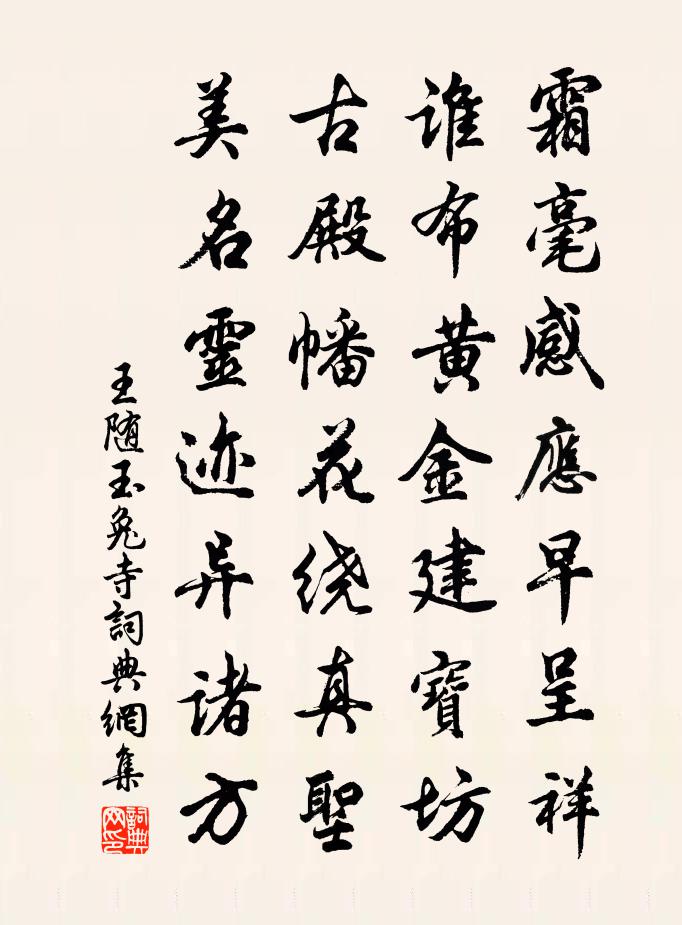 霜毫感應早呈祥
谁布黄金建寶坊
古殿幡花绕真聖
美名靈迹异诸方
王随玉兔寺詞典網集
詞典網印